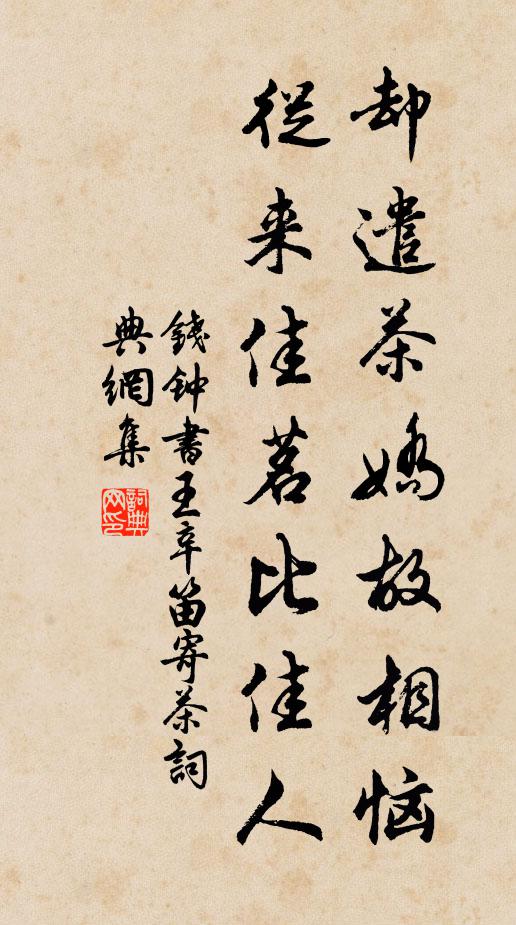 却遣茶嬌故相恼
從来佳茗比佳人
錢鈡書王辛笛寄茶詞
典網集
詞典網印